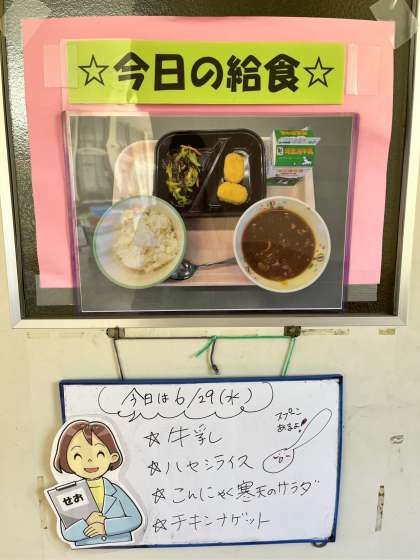 ☆今日の給食☆
今日は6/29(水)
☆牛乳
☆ハヤシライス
☆こんにゃく寒天のサラダ
☆チキンナゲット
スプーン
あるよ!
せお